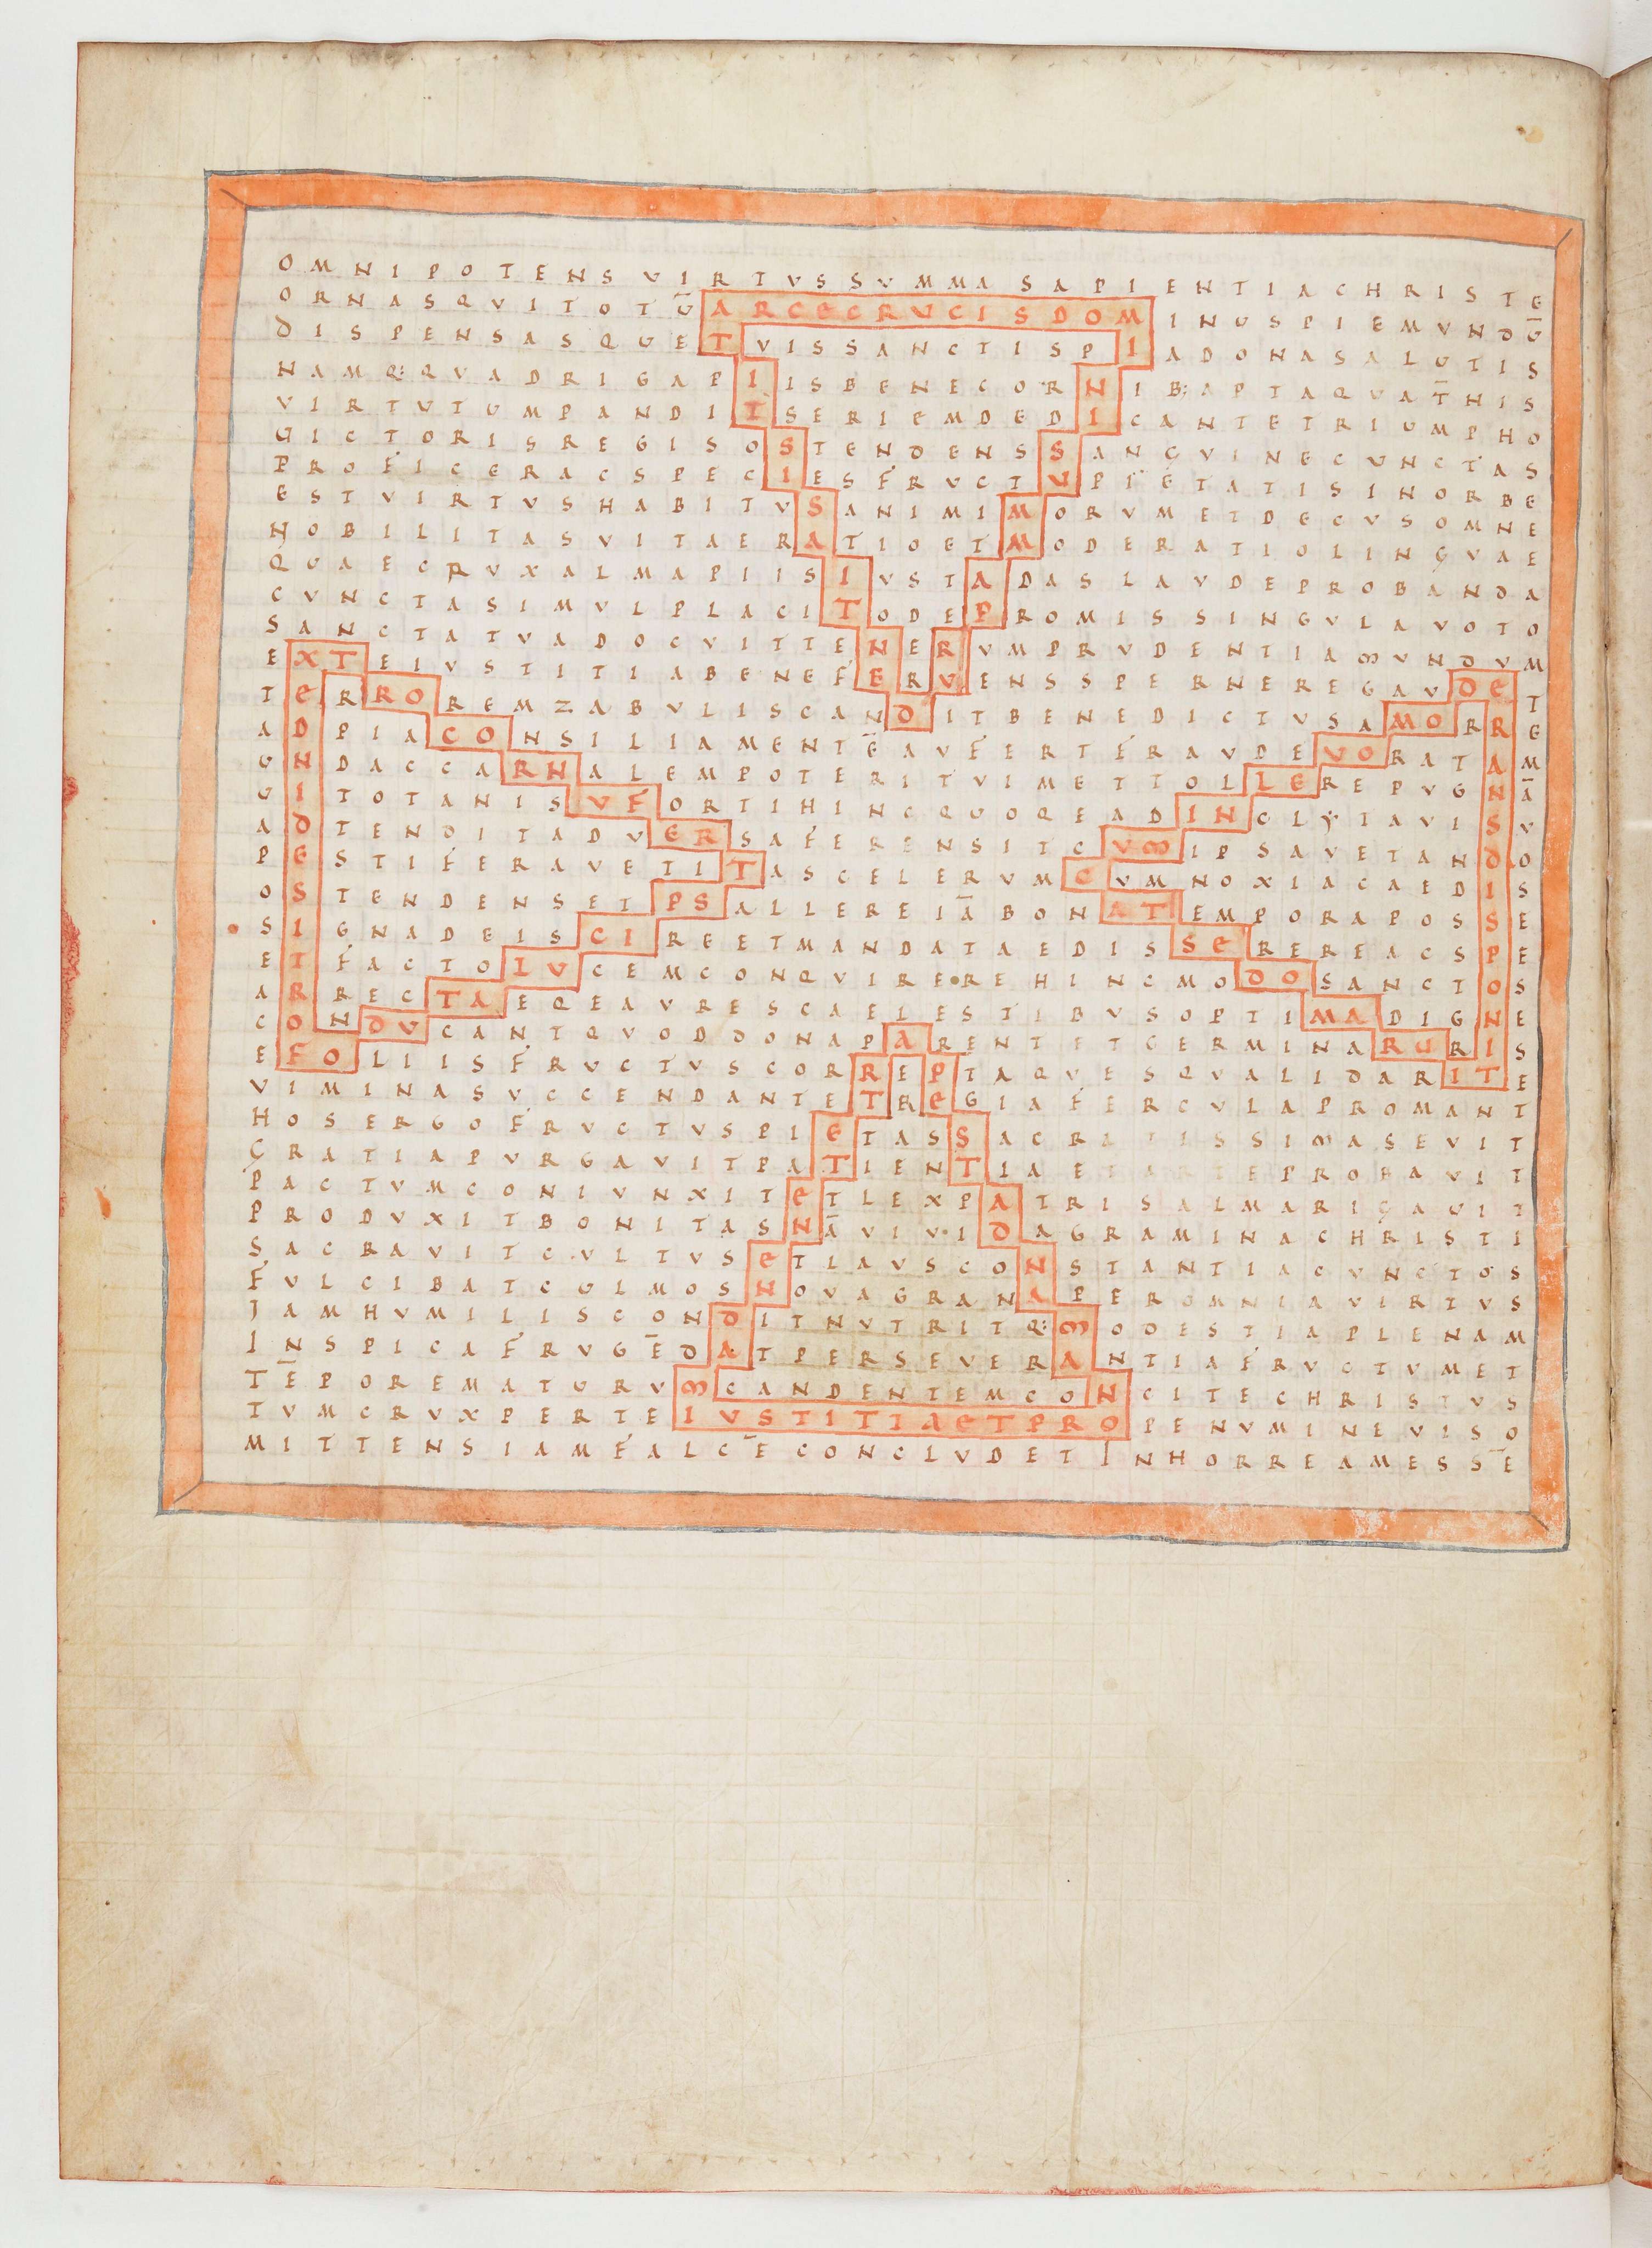 OMNIPOTENSVIRTVSSVMMASAPIENTIACHRISTE
ORNASQVITOTŪARCECRVCISDOMINUSPIEMVNDŪ
DISPENSASQUETVISSANCTISPIADONASALUTIS
NAMQ:QVADRIGAPIISBENECORNIB;APTAQVAT̄HIS
VIRTUTUMPANDITSERIEMDEDICANTETRIUMPHO
UICTORISREGISOSTENDENSSANGVINECUNCTAS
PROFICERACSPECIESFRVCTUPIETATISINORBE
ESTVIRTVSHABITVSANIMIMORVMETDECVSOMNE
NOBILITASVITAERATIOETMODERATIOLINGVAE
QUAECRVXALMAPIISIVSTADASLAVDEPROBANDA
CVNCTASIMVLPLACITODEPROMISSINGVLAVOTO
SANCTATVADOCVITTENERVMPRVDENTIAMVNDVM
EXTEIVSTITIABENEFERVENSSPERNEREGAVDET
TERROREMZABVLISCANDITBENEDICTVSAMORRE
ADPIACONSILIAMENTĒAVFERTFRAVDEVORATAM
UNDACCARNALEMPOTERITVIMETTOLLEREPVGNĀ
UITOTANISVFORTIHINCQUOQEADINCLYTAVISV
ADTENDITADVERSAFERENSITCVMIPSAVETANDO
PESTIFERAVETITASCELERVMCVMNOXIACAEDIS
OSTENDENSETPSALLEREIĀBONATEMPORAPOSSE
SIGNADEISCIREETMANDATAEDISSEREREACSPE
ETFACTOIVCEMCONQVIREREHINCMODOSANCTOS
ARRECTAEQEAVRESCAELESTIBVSOPTIMADIGNE
CONDVCANTQVODDONAPARENTETGERMINARURIS
EFOLIISFRVCTVSCORREPTAQVESQVALIDARITE
VIMINASVCCENDANTETREGIAFERCVLAPROMANT
HOSERGOFRVCTVSPIETASSACRATISSIMASEVIT
GRATIAPVRGAVITPATIENTIAETARTEPROBAVIT
PACTVMCONIVNXITETLEXPATRISALMARIGAUIT
PRODVXITBONITASNĀVIVIDAGRAMINACHRISTI
SACRAVITCVLTVSETLAVSCONSTANTIACVNCTOS
FVLCIBATCULMOSNOVAGRANAPEROMNIAVIRTVS
IAMHVMILISCONDITNVTRITQ:MODESTIAPLENAM
INSPICAFRVGĒDATPERSEVERANTIAFRVCTVMET
TĒPOREMATURVMCANDENTEMCONCITECHRISTVS
TVMCRVXPERTEIVSTITIAETPROPENVMINEVISO
MITTENSIAMFALCĒCONCLVDETINHORREAMESSĒ